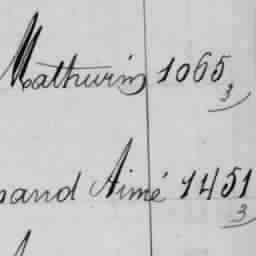 Mathurin 1065
3
Aimé 1451
3